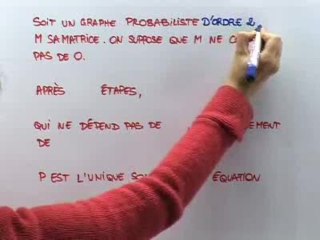 SOIT UN GRAPHE PROBABILISTE D'ORDRE 2,
M SA MATRICE. ON SUPPOSE QUE M NE
PAS DE 0.
APRÈS ÉTAPES,
QUI NE DÉPEND PAS DE
DE
P EST L'UNIQUE ÉQUATION